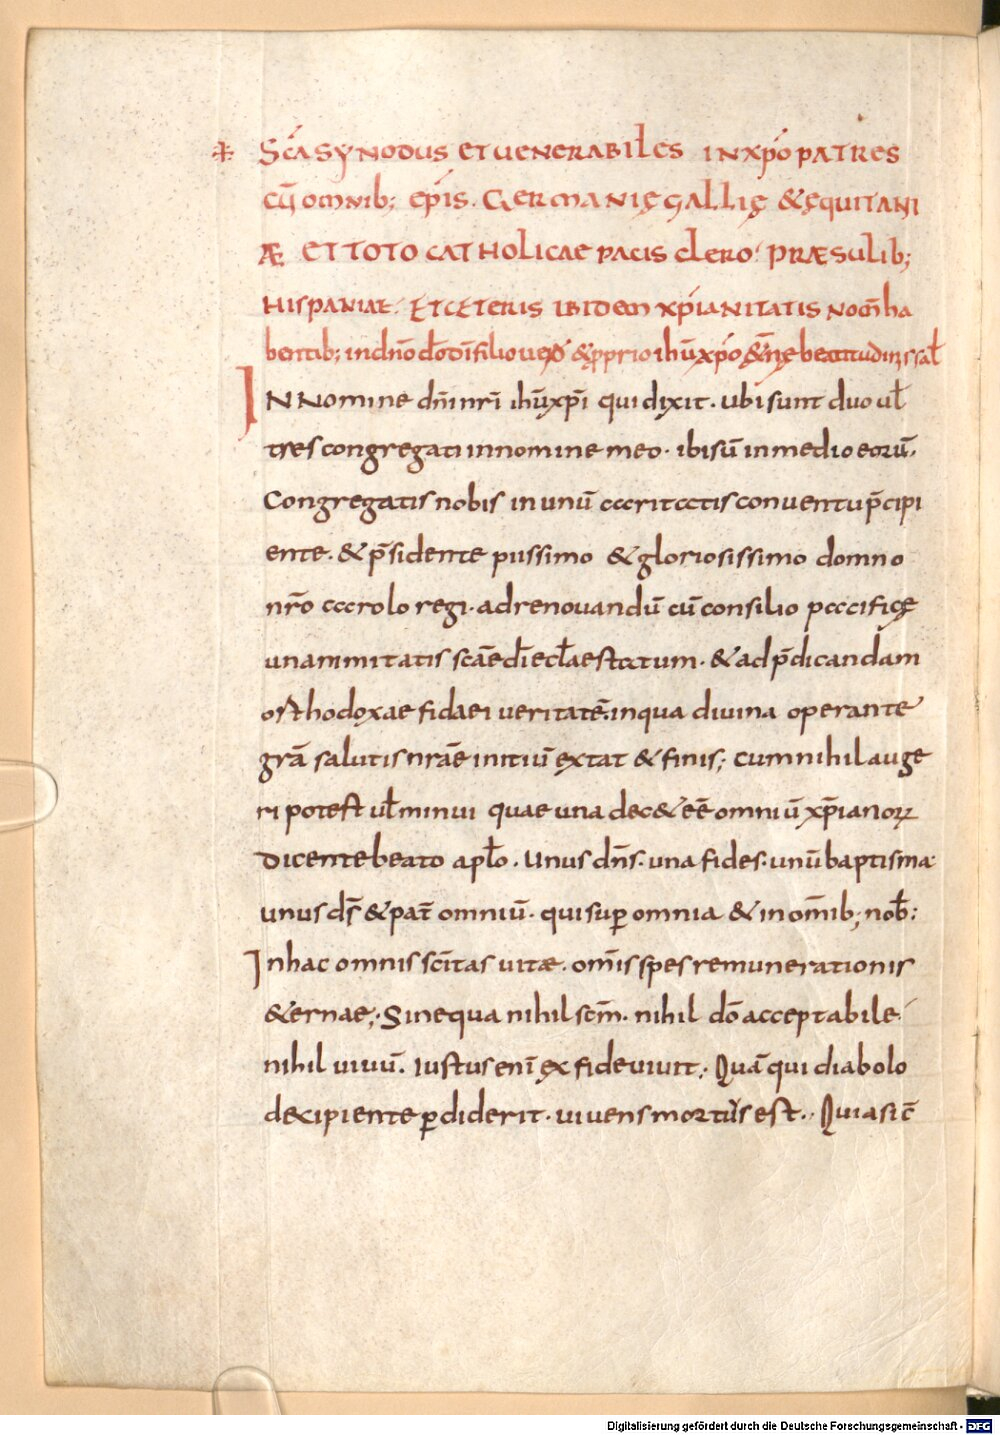 ⁜ Sc̄a synodus et uenerabiles in xp̄o patres
cū omnib; ep̄is. Germanię gallię & ęquitani
æ et toto catholicae pacis clero. præsulib;
hispaniae. Et ceteris ibidem xp̄ianitatis nom̄ ha
bentib; in dn̄o do᷎ dī filio uero & pprio ihū xp̄o &ernę beatitudinis sal̄
IN Nomine dn̄i nr̄i ihū xp̄i qui dixit. ubi sunt duo ul̄
tres congregati in nomine meo. ibi sū in medio eorū.
Congregatis nobis in unū caritatis conuentu p̄cipi
ente. & p̄sidente piissimo & gloriosissimo domno
nr̄o carolo rege. ad renouandū cū consilio pacificę
unanimitatis sc̄ae dī eccl̄ae statum. & ad p̄dicandam
orthodoxae fidaei ueritatē. in qua diuina operante
gr̄a salutis nr̄ae initiū extat & finis; cum nihil auge
ri potest ul̄ minui quae una dec& eē omniū xp̄ianoꝝ
dicente beato apl̄o. Unus dn̄s. una fides. unū baptisma.
unus ds̄ & pat̄ omniū. qui suꝑ omnia & in om̄ib; nob̄:
In hac omnis sc̄itas uitæ. om̄is spes remunerationis
&ernae; Sine qua nihil sc̄m. nihil dō acceptabile.
nihil uiuū. Iustus enī ex fide uiuit; Quā qui diabolo
decipiente ꝑdiderit. uiuens mortuus est. Quia sic̄
Digitalisierung gefördert durch die Deutsche Forschungsgemeinschaft - DFG